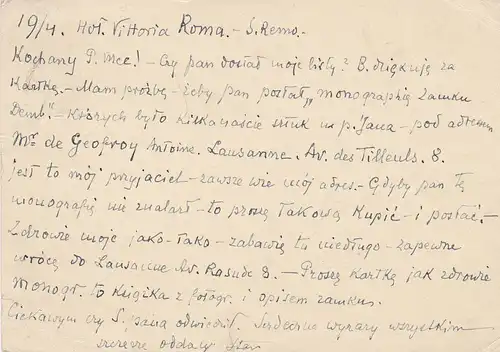 19/4. Hot. Vittoria Roma. - S. Remo. -
Kochany P. Mec! - Czy pan dostał moje listy? B. dziękuję za
Kartkę. - Mam prośbę - żeby pan posłał „monographię zamku
Demb." - których było kilkanaście sztuk u p. Jana - pod adresem
Mr. de Geofroy Antoine. Lausanne. Av. des Tilleuls. 8.
jest to mój przyjaciel - zawsze wie mój adres. - Gdyby pan tę
monografię nie znalazł - to proszę takową kupić - i posłać. -
Zdrowie moje jako-tako - zabawię tu niedługo - zapewne
wrócę do Lausanne Av. Rasude 8. - Proszę kartkę jak zdrowie
Monogr. to książka z fotogr. i opisem zamku.
Ciekawym czy S. pana odwiedził. Serdeczne wyrazy wszystkim
szczerze oddany Stan